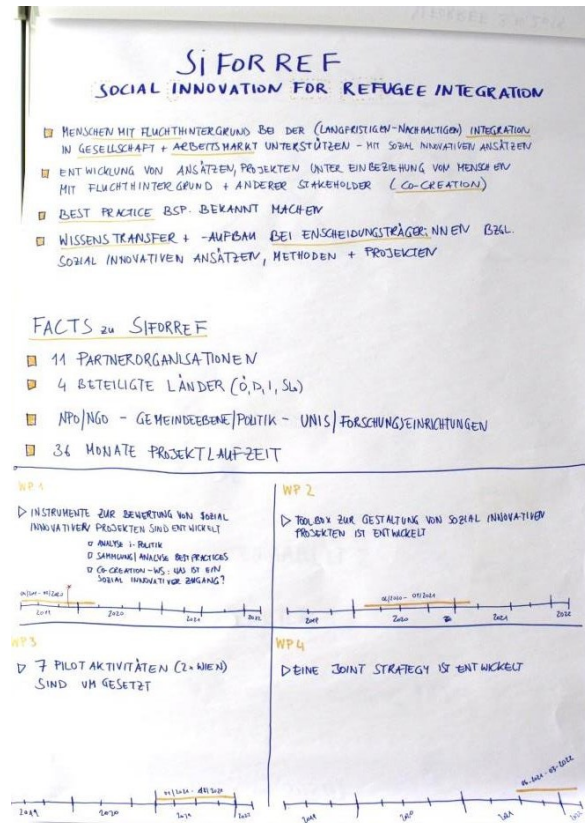 SiFORREF
SOCIAL INNOVATION FOR REFUGEE INTEGRATION
MENSCHEN MIT FLUCHTHINTERGRUND BEI DER (LANGFRISTIGEN-NACHHALTIGEN) INTEGRATION
IN GESELLSCHAFT + ARBEITSMARKT UNTERSTÜTZEN - MIT SOZIAL INNOVATIVEN ANSÄTZEN
ENTWICKLUNG VON ANSÄTZEN, PROJEKTEN UNTER EINBEZIEHUNG VON MENSCHEN
MIT FLUCHTHINTERGRUND + ANDERER STAKEHOLDER (CO-CREATION)
BEST PRACTICE BSP. BEKANNT MACHEN
WISSENSTRANSFER + -AUFBAU BEI ENSCHEIDUNGSTRÄGER:NNEN BZGL.
SOZIAL INNOVATIVEN ANSÄTZEN, METHODEN + PROJEKTEN
FACTS zu SIFORREF
11 PARTNERORGANISATIONEN
4 BETEILIGTE LÄNDER (Ö, D, I, Slo)
NPO/NGO - GEMEINDEEBENE/POLITIK - UNIS/FORSCHUNGSEINRICHTUNGEN
36 MONATE PROJEKTLAUFZEIT
WP 1
INSTRUMENTE ZUR BEWERTUNG VON SOZIAL
INNOVATIVEN PROJEKTEN SIND ENTWICKELT
ANALYSE I-POLITIK
SAMMLUNG/ANALYSE BEST PRACTICES
CO-CREATION-WS: WAS IST EIN
SOZIAL INNOVATIVER ZUGANG?
2019 2020 2021 2022
WP 2
TOOLBOX ZUR GESTALTUNG VON SOZIAL INNOVATIVEN
PROJEKTEN IST ENTWICKELT
2019 2020 2021 2022
WP3
7 PILOTAKTIVITÄTEN (2x WIEN)
SIND UMGESETZT
2019 2020 2021 2022
WP4
EINE JOINT STRATEGY IST ENTWICKELT
2019 2020 2021